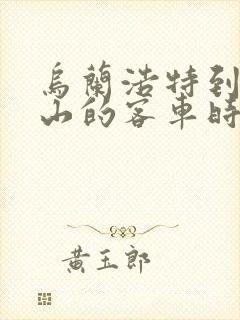 烏蘭浩特到
山的客車時
黃玉郎